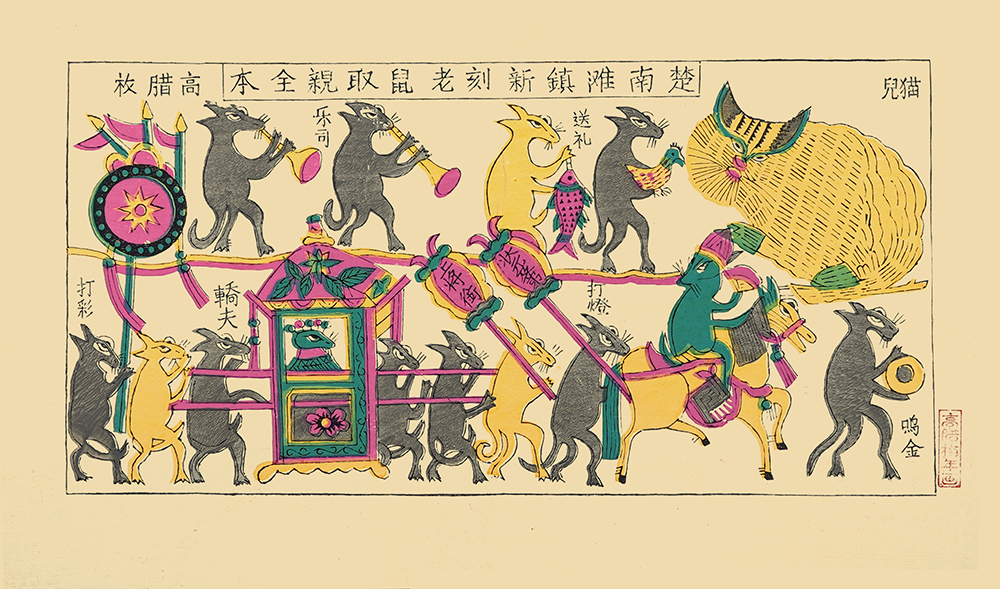 猫兒
楚南滩鎮新刻老鼠取親全本
高腊枚
送礼
乐司
打燈
轎夫
打彩
鳴金
高腊梅年画